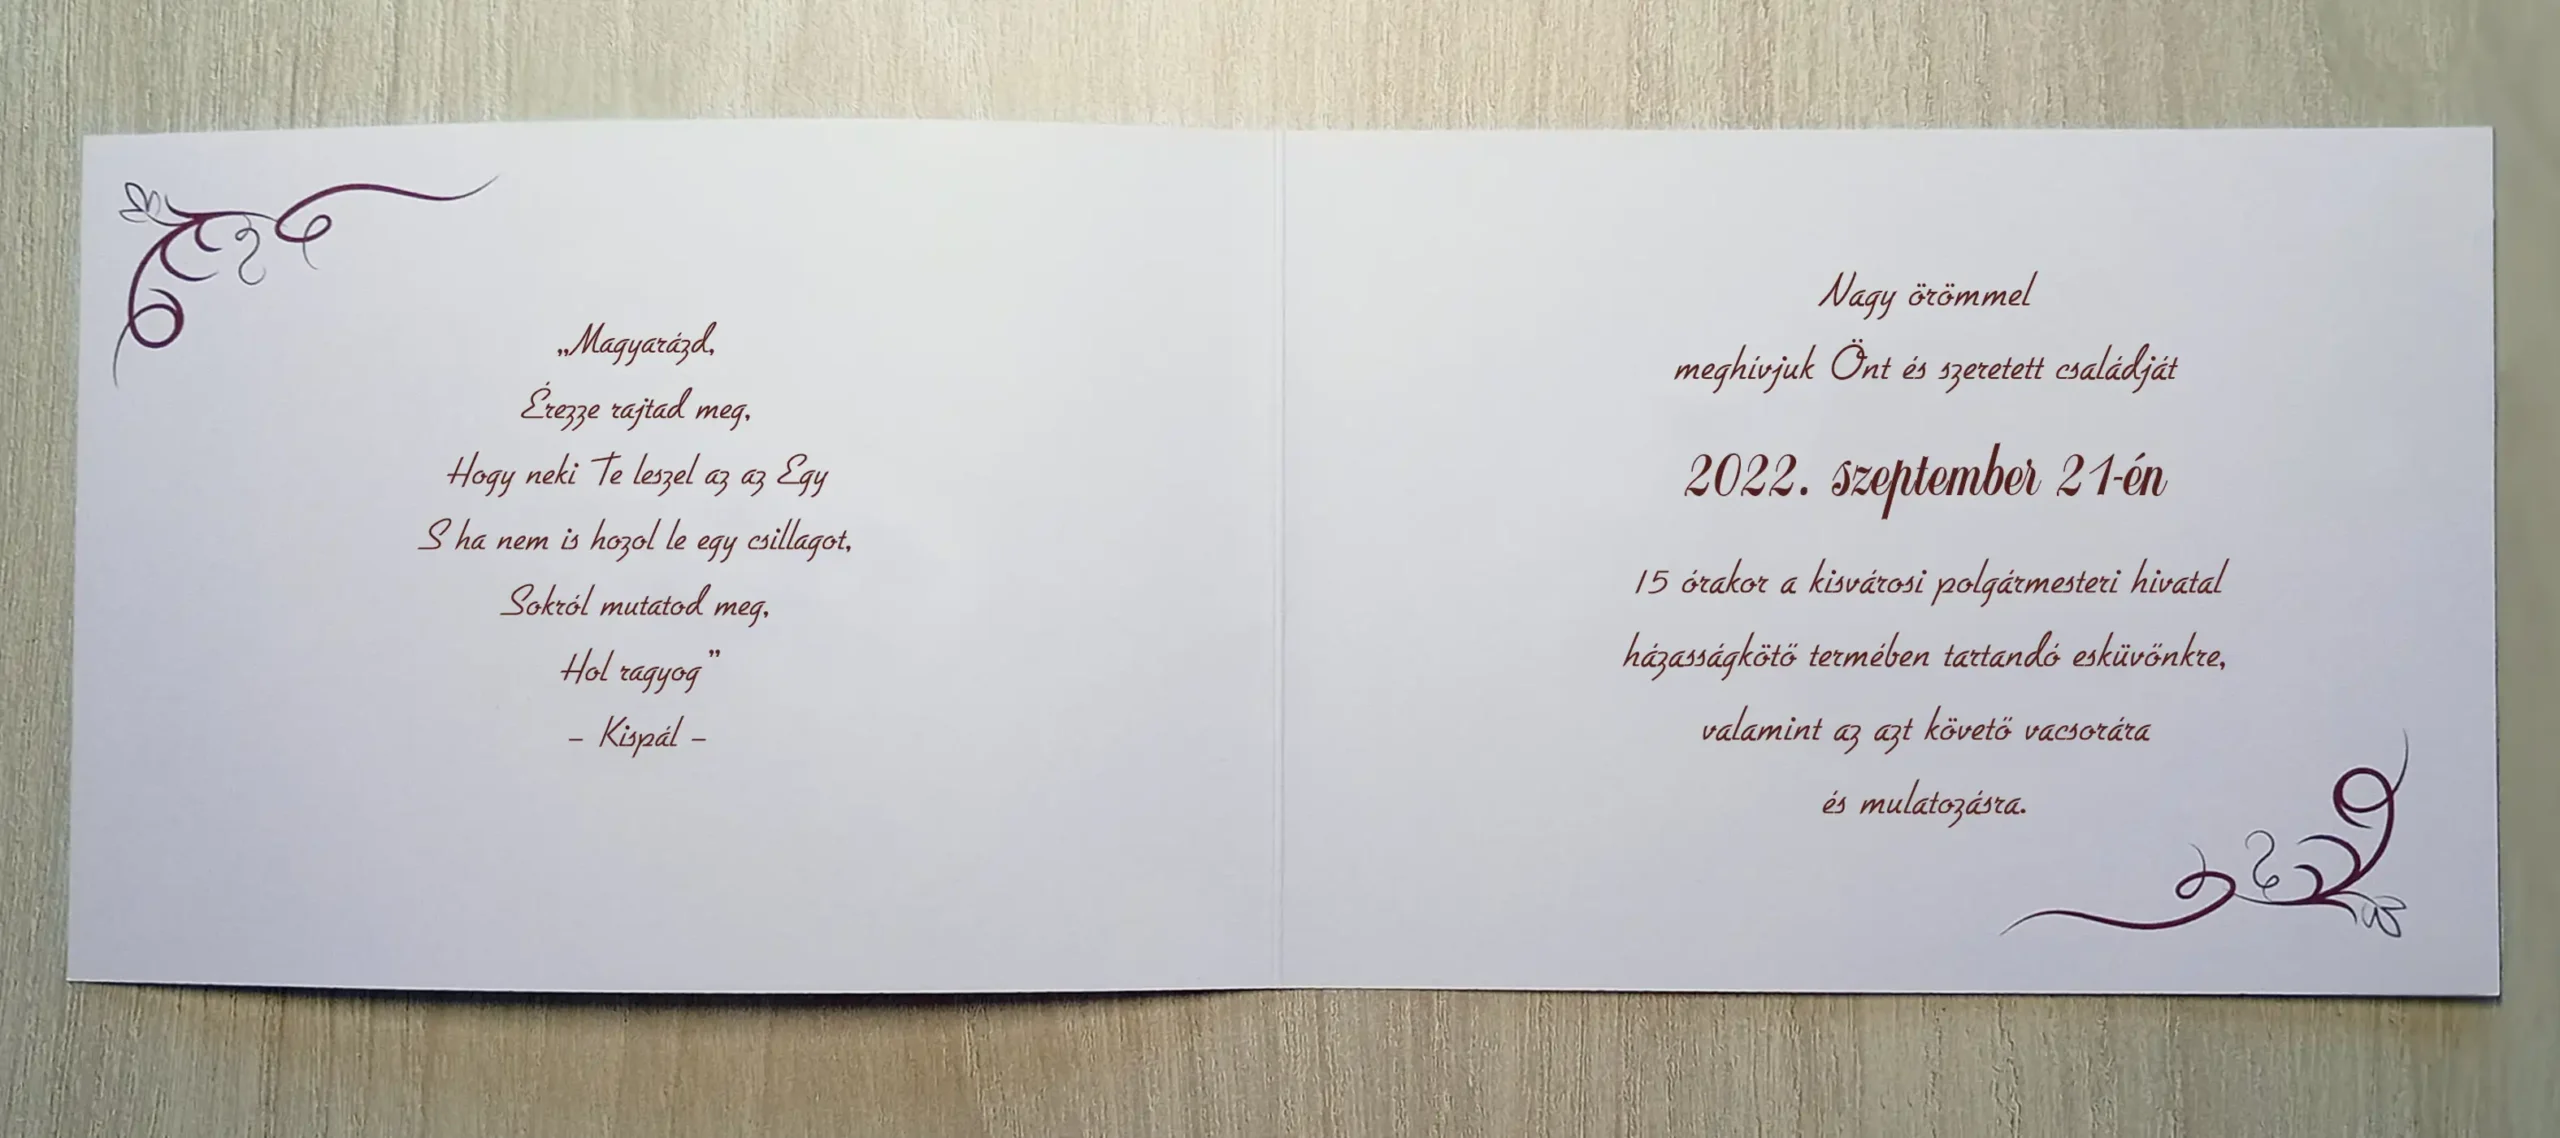 „Magyarázd,
Érezze rajtad meg,
Hogy neki Te leszel az az Egy
S ha nem is hozol le egy csillagot,
Sokról mutatod meg,
Hol ragyog”
– Kispál –
Nagy örömmel
meghívjuk Önt és szeretett családját
2022. szeptember 21-én
15 órakor a kisvárosi polgármesteri hivatal
házasságkötő termében tartandó esküvőnkre,
valamint az azt követő vacsorára
és mulatozásra.